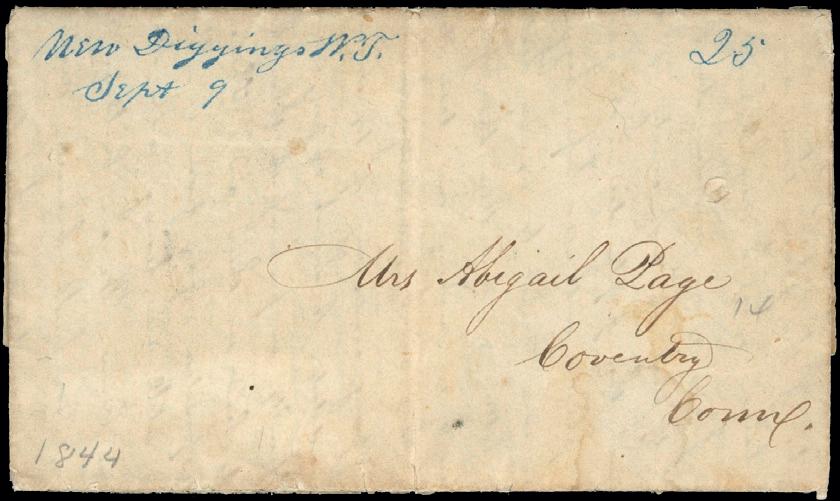 New Diggings W.T.
Sept 9
25
Mrs Abigail Page
14
Coventry
Conn.
1844